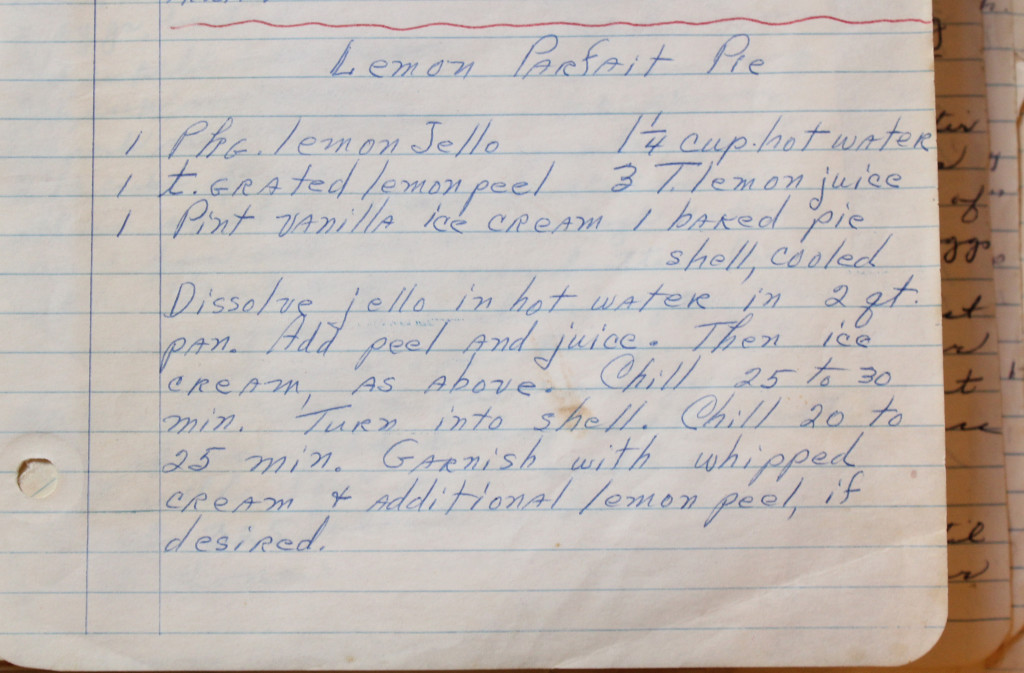 Lemon Parfait Pie
1 Pkg. lemon Jello 1 1/4 cup hot water
1 t. grated lemon peel 3 T. lemon juice
1 Pint vanilla ice cream 1 baked pie
shell, cooled
Dissolve jello in hot water in 2 qt.
pan. Add peel and juice. Then ice
cream, as above. Chill 25 to 30
min. Turn into shell. Chill 20 to
25 min. Garnish with whipped
cream & additional lemon peel, if
desired.